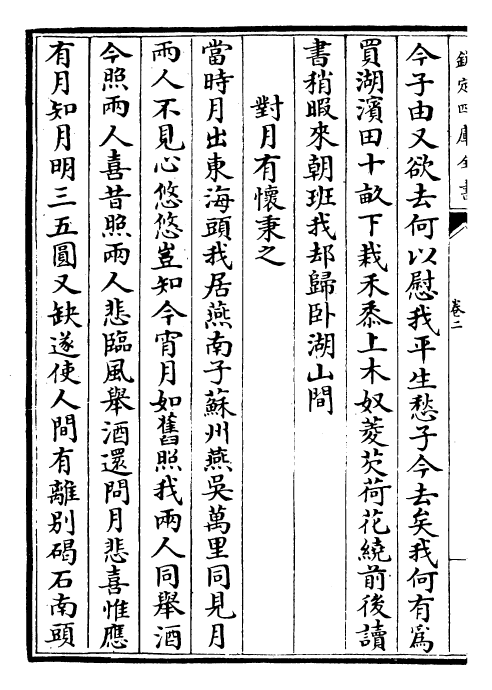 欽定四庫全書
卷二
今子由又欲去何以慰我平生愁子今去矣我何有爲
買湖濱田十畝下栽禾黍上木奴菱芡荷花繞前後讀
書稍暇來朝班我却歸卧湖山間
對月有懷秉之
當時月出東海頭我居燕南子蘇州燕吳萬里同見月
兩人不見心悠悠豈知今宵月如舊照我兩人同舉酒
今照兩人喜昔照兩人悲臨風舉酒還問月悲喜惟應
有月知月明三五圓又缺遂使人間有離别碣石南頭